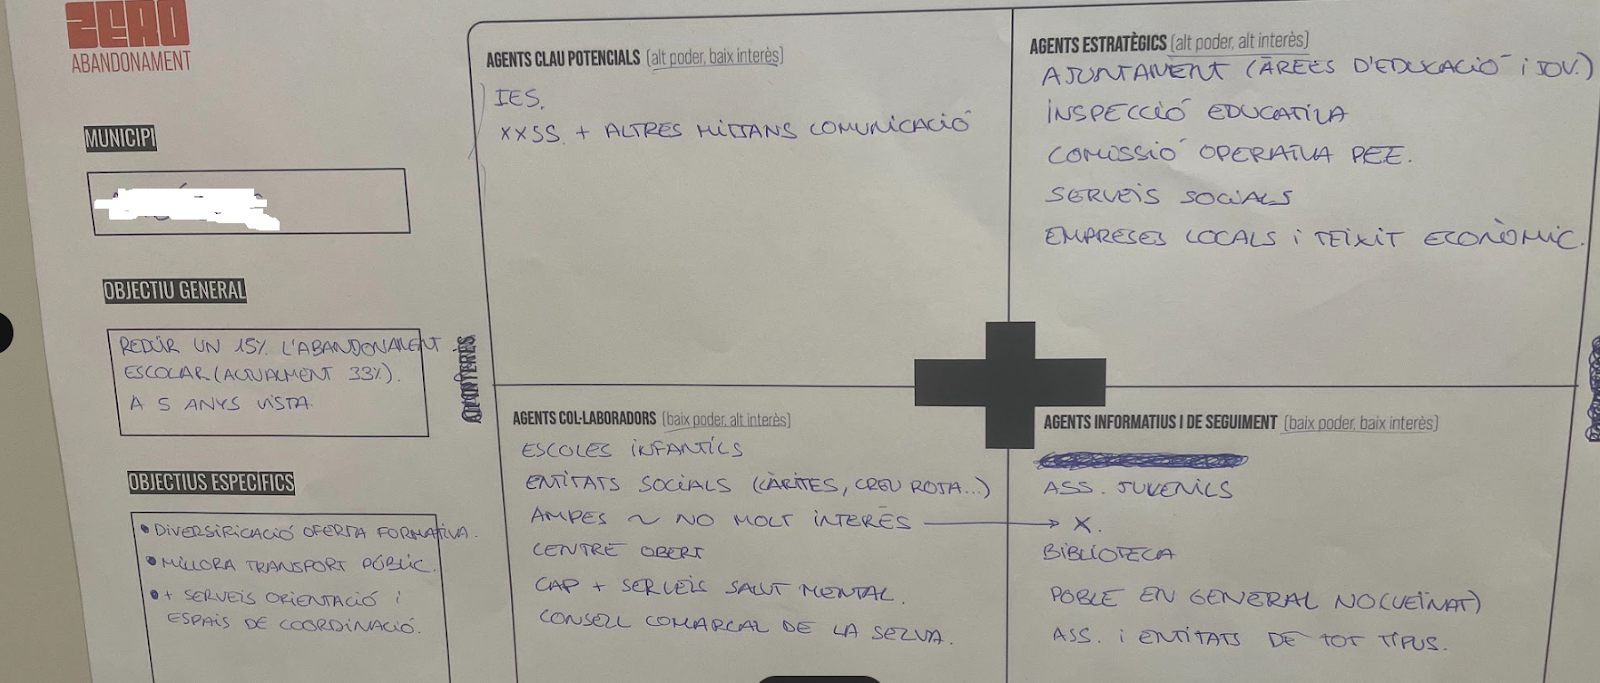 ZERO
ABANDONAMENT
MUNICIPI
OBJECTIU GENERAL
REDUIR UN 15% L'ABANDONAMENT
ESCOLAR (ACTUALMENT 33%).
A 5 ANYS VISTA
OBJECTIUS ESPECÍFICS
• DIVERSIFICACIÓ OFERTA FORMATIVA.
• MILLORA TRANSPORT PÚBLIC.
• + SERVEIS ORIENTACIÓ i
ESPAIS DE COORDINACIÓ.
AGENTS CLAU POTENCIALS (alt poder, baix interès)
IES.
XXSS. + ALTRES MITJANS COMUNICACIÓ
AGENTS ESTRATÈGICS (alt poder, alt interès)
AJUNTAMENT (ÀREES D'EDUCACIÓ i JOV.)
INSPECCIÓ EDUCATIVA
COMISSIÓ OPERATIVA PEE.
SERVEIS SOCIALS
EMPRESES LOCALS i TEIXIT ECONÒMIC.
AGENTS COL·LABORADORS (baix poder, alt interès)
ESCOLES INFANTILS
ENTITATS SOCIALS (CÀRITES, CREU ROJA...)
AMPES ~ NO MOLT INTERÈS → X.
CENTRE OBERT
CAP + SERVEIS SALUT MENTAL.
CONSELL COMARCAL DE LA SELVA.
AGENTS INFORMATIUS I DE SEGUIMENT (baix poder, baix interès)
ASS. JUVENILS
BIBLIOTECA
POBLE EN GENERAL NO(VEÏNAT)
ASS. i ENTITATS DE TOT TIPUS.